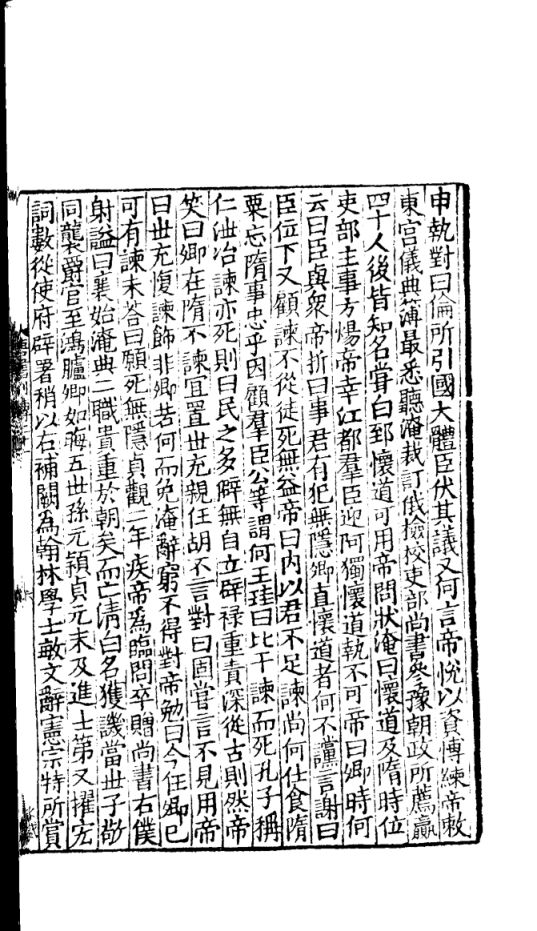 申執對曰倫所引國大體臣伏其議又何言帝悅以資博練帝敕
東宮儀典簿最悉聽淹裁訂俄檢校吏部尚書參豫朝政所薦贏
四十人後皆知名嘗白郅懷道可用帝問狀淹曰懷道及隋時位
吏部主事方煬帝幸江都羣臣迎阿獨懷道執不可帝曰卿時何
云曰臣與衆帝折曰事君有犯無隱卿直懷道者何不讜言謝曰
臣位下又顧諫不從徒死無益帝曰内以君不足諫尚何仕食隋
粟忘隋事忠乎因顧羣臣公等謂何王珪曰比干諫而死孔子稱
仁泄冶諫亦死則曰民之多僻無自立辟禄重責深從古則然帝
笑曰卿在隋不諫宜置世充親任胡不言對曰固嘗言不見用帝
曰世充愎諫飾非卿若何而免淹辭窮不得對帝勉曰今任卿已
可有諫未荅曰願死無隱貞觀二年疾帝爲臨問卒贈尚書右僕
射謚曰襄始淹典二職貴重於朝矣而亡清白名獲譏當世子敬
同襲爵官至鴻臚卿如晦五世孫元穎貞元末及進士第又擢宏
詞數從使府辟署稍以右補闕爲翰林學士敏文辭憲宗特所賞